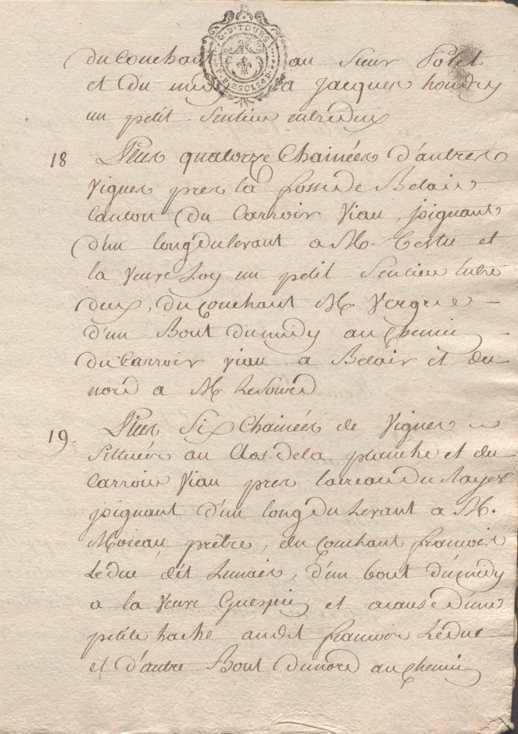 G. D. TOURS
du Couchant au sieur
et du midy a jacques houdry
un petit Sentier entredeux
18 Plus quatorze Chainées d'autres
Vignes pres la fosse de Belair
Canton du Carroir Viau, joignant
d'un long du levant a M. Testu et
la Veuve Loy un petit Sentier Entre
deux, du Couchant M. Vergne
d'un Bout du midy au Chemin
du Carroir Viau a Belair et du
nord a M.
19. Plus Six Chainées de Vignes
Sittuées au Clos de la planche et du
Carroir Viau pres laireau du Noyer
joignant d'un long du Levant a M.
Moreau prêtre, du Couchant francois
Leduc dit Lemair, d'un bout du midy
a la Veuve Guespin et acause d'une
petite hache audit francois Leduc
et d'autre Bout du nord au Chemin